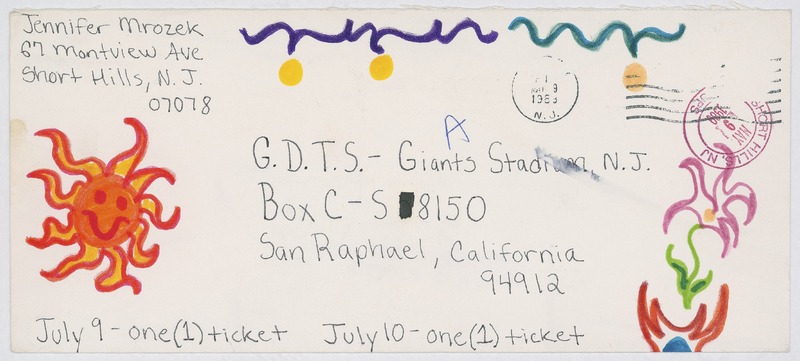 Jennifer Mrozek
67 Montview Ave
Short Hills, N.J.
07078
MAY 9
N.J.
SHORT HILLS, NJ
MAY
9
USPS
A
G.D.T.S.- Giants Stadium, N.J.
Box C-S 8150
San Raphael, California
94912
July 9-one(1) ticket July 10-one(1) ticket